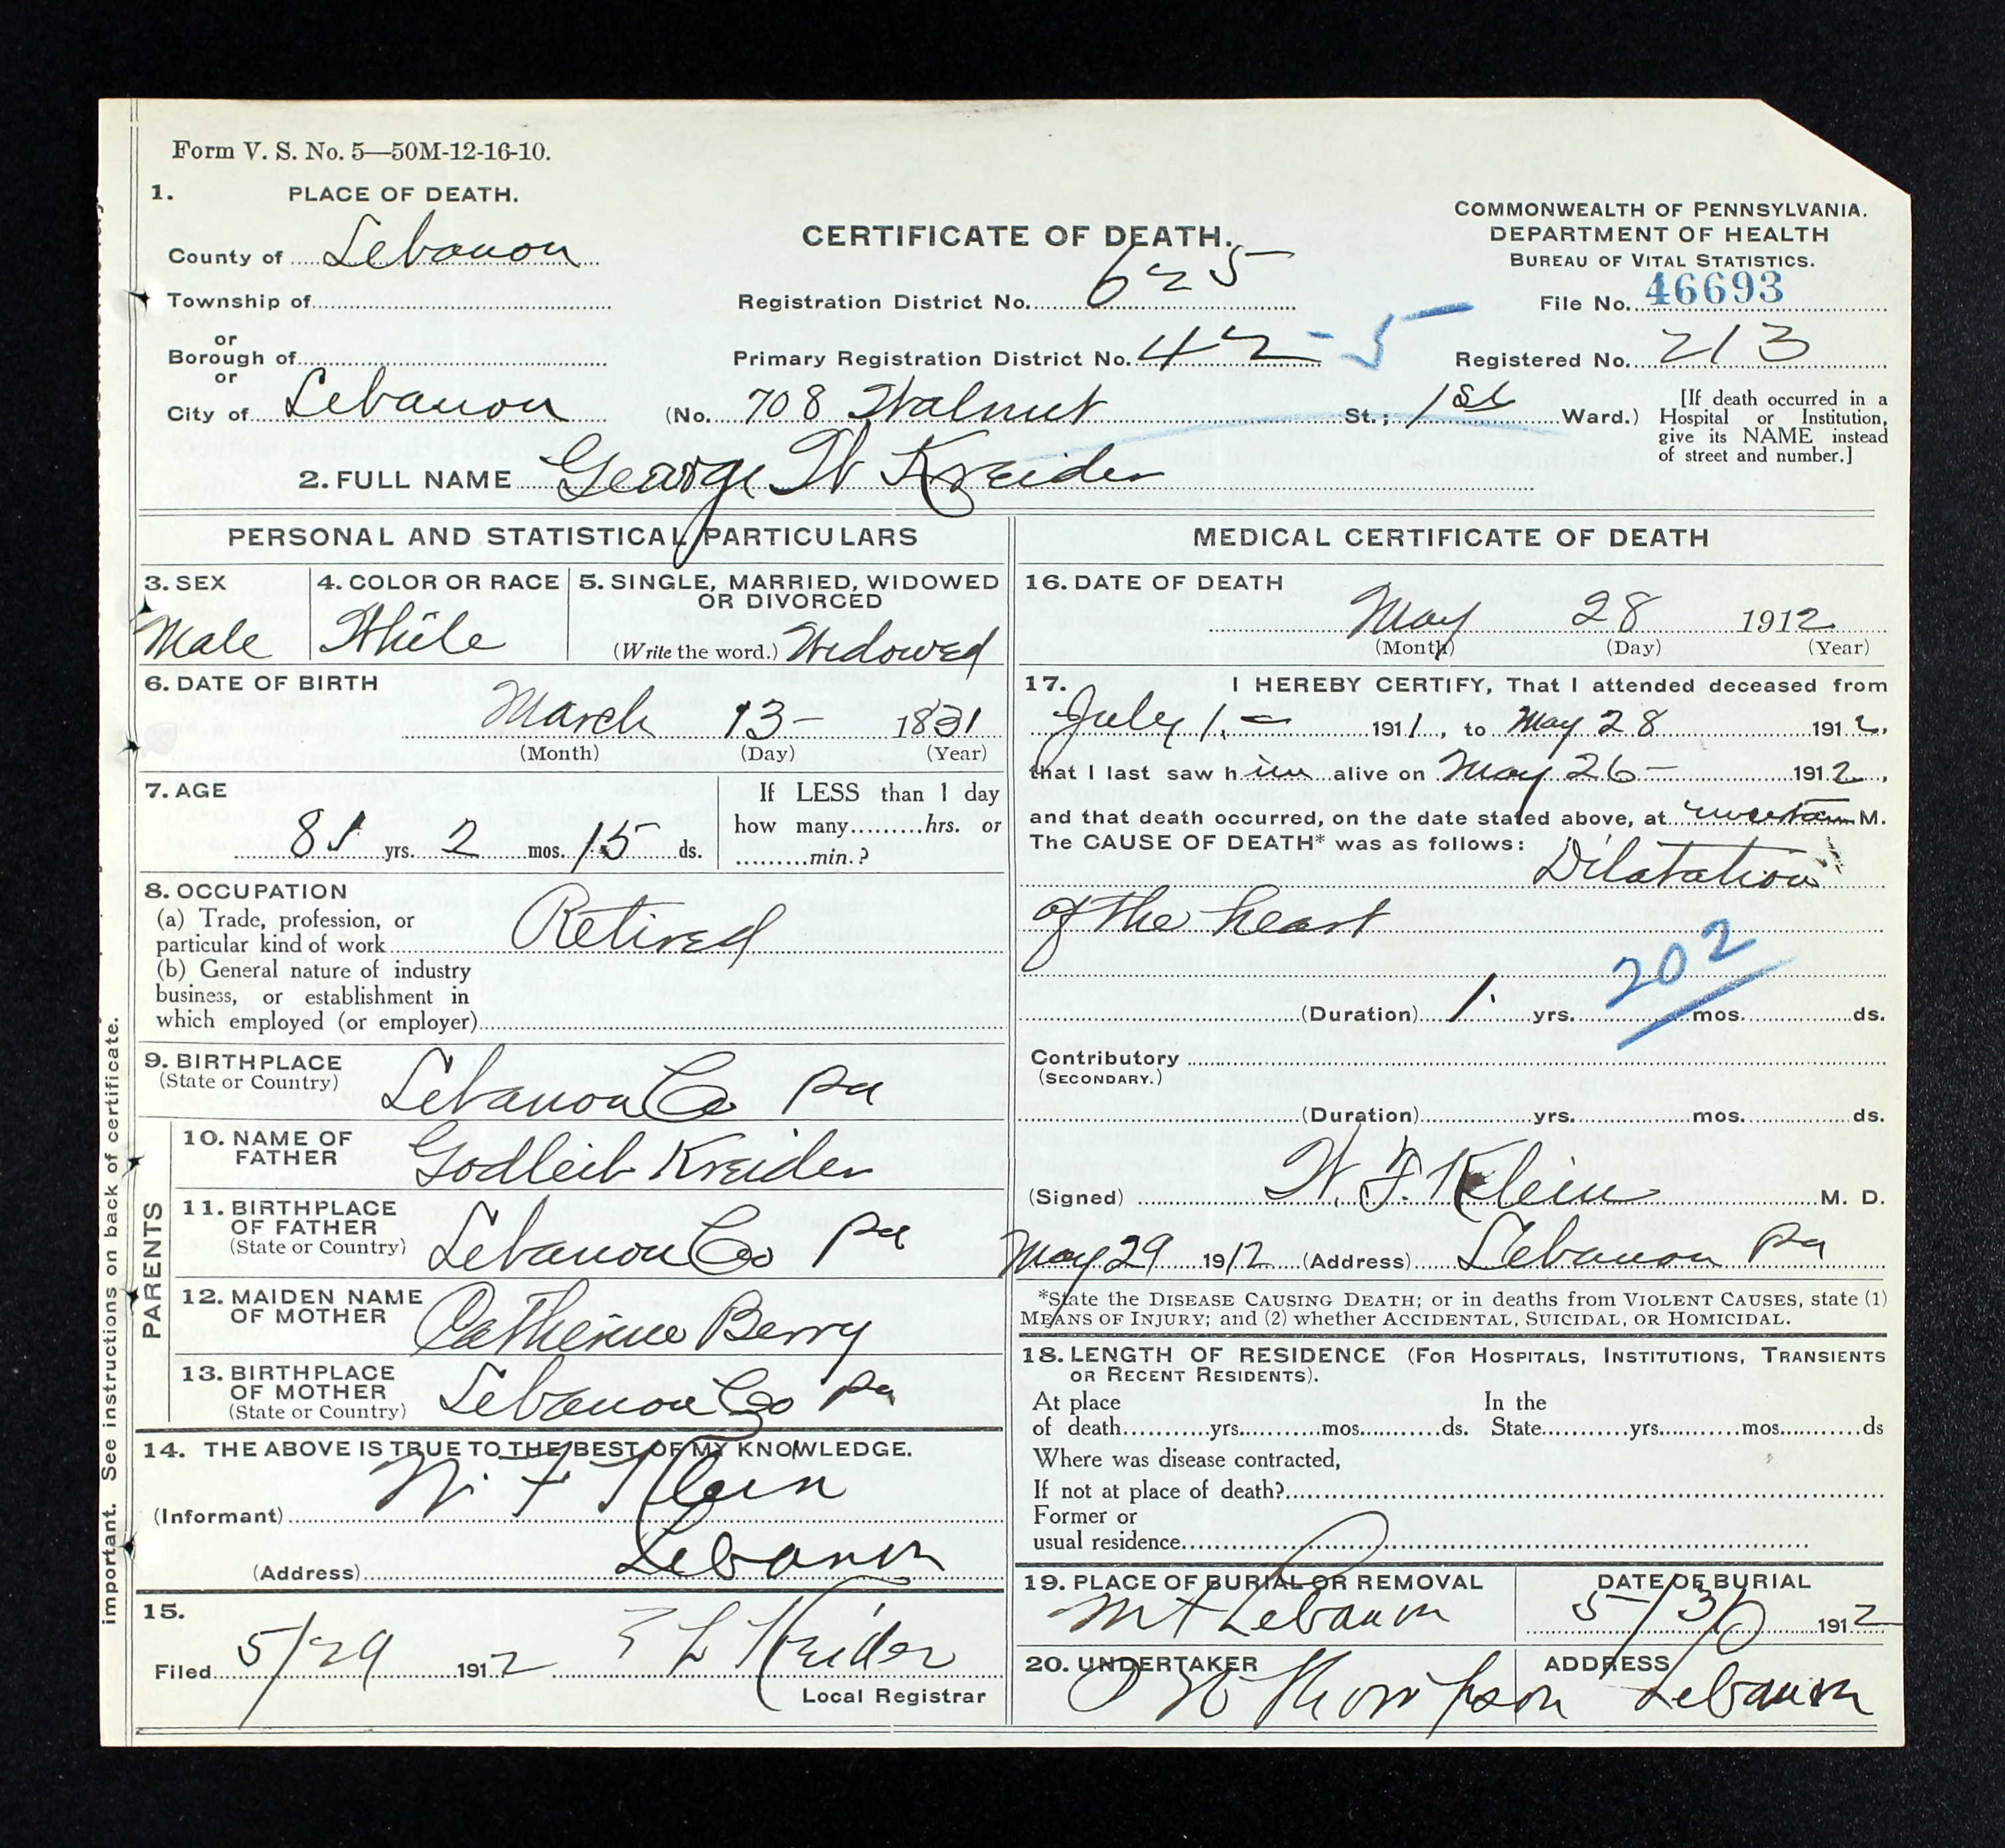 Form V. S. No. 5—50M-12-16-10.
1. PLACE OF DEATH.
County of Lebanon
Township of
or
Borough of
or
City of Lebanon
CERTIFICATE OF DEATH.
Registration District No. 625
Primary Registration District No. 42 - 5
(No. 708 Walnut St.; 1st Ward.)
COMMONWEALTH OF PENNSYLVANIA.
DEPARTMENT OF HEALTH
BUREAU OF VITAL STATISTICS.
File No. 46693
Registered No. 213
[If death occurred in a
Hospital or Institution,
give its NAME instead
of street and number.]
2. FULL NAME George W Kreider
PERSONAL AND STATISTICAL PARTICULARS
3. SEX
Male
4. COLOR OR RACE
White
5. SINGLE, MARRIED, WIDOWED
OR DIVORCED
(Write the word.) Widowed
6. DATE OF BIRTH
March 13 - 1831
(Month) (Day) (Year)
7. AGE
81 yrs. 2 mos. 15 ds.
If LESS than 1 day
how many.........hrs. or
.........min.?
8. OCCUPATION
(a) Trade, profession, or
particular kind of work Retired
(b) General nature of industry
business, or establishment in
which employed (or employer)
9. BIRTHPLACE
(State or Country) Lebanon Co Pa
PARENTS
10. NAME OF
FATHER Godleib Kreider
11. BIRTHPLACE
OF FATHER
(State or Country) Lebanon Co Pa
12. MAIDEN NAME
OF MOTHER Catherine Berry
13. BIRTHPLACE
OF MOTHER
(State or Country) Lebanon Co Pa
14. THE ABOVE IS TRUE TO THE BEST OF MY KNOWLEDGE.
(Informant) W. F Klein
(Address) Lebanon
15.
Filed 5/29 1912 L Kreider
Local Registrar
MEDICAL CERTIFICATE OF DEATH
16. DATE OF DEATH
May 28 1912
(Month) (Day) (Year)
17. I HEREBY CERTIFY, That I attended deceased from
July 1, - 1911, to May 28 1912,
that I last saw him alive on May 26 - 1912,
and that death occurred, on the date stated above, at uncertain M.
The CAUSE OF DEATH* was as follows: Dilatation
of the heart
202
(Duration) 1. yrs. mos. ds.
Contributory
(SECONDARY.)
(Duration) yrs. mos. ds.
(Signed) W. F. Klein M. D.
May 29 1912 (Address) Lebanon Pa
*State the DISEASE CAUSING DEATH; or in deaths from VIOLENT CAUSES, state (1)
MEANS OF INJURY; and (2) whether ACCIDENTAL, SUICIDAL, OR HOMICIDAL.
18. LENGTH OF RESIDENCE (FOR HOSPITALS, INSTITUTIONS, TRANSIENTS
OR RECENT RESIDENTS).
At place In the
of death...........yrs...........mos...........ds. State...........yrs...........mos...........ds
Where was disease contracted,
If not at place of death?
Former or
usual residence
19. PLACE OF BURIAL OR REMOVAL
Mt Lebanon
DATE OF BURIAL
5-/30 1912
20. UNDERTAKER
Thompson
ADDRESS
Lebanon
important. See instructions on back of certificate.